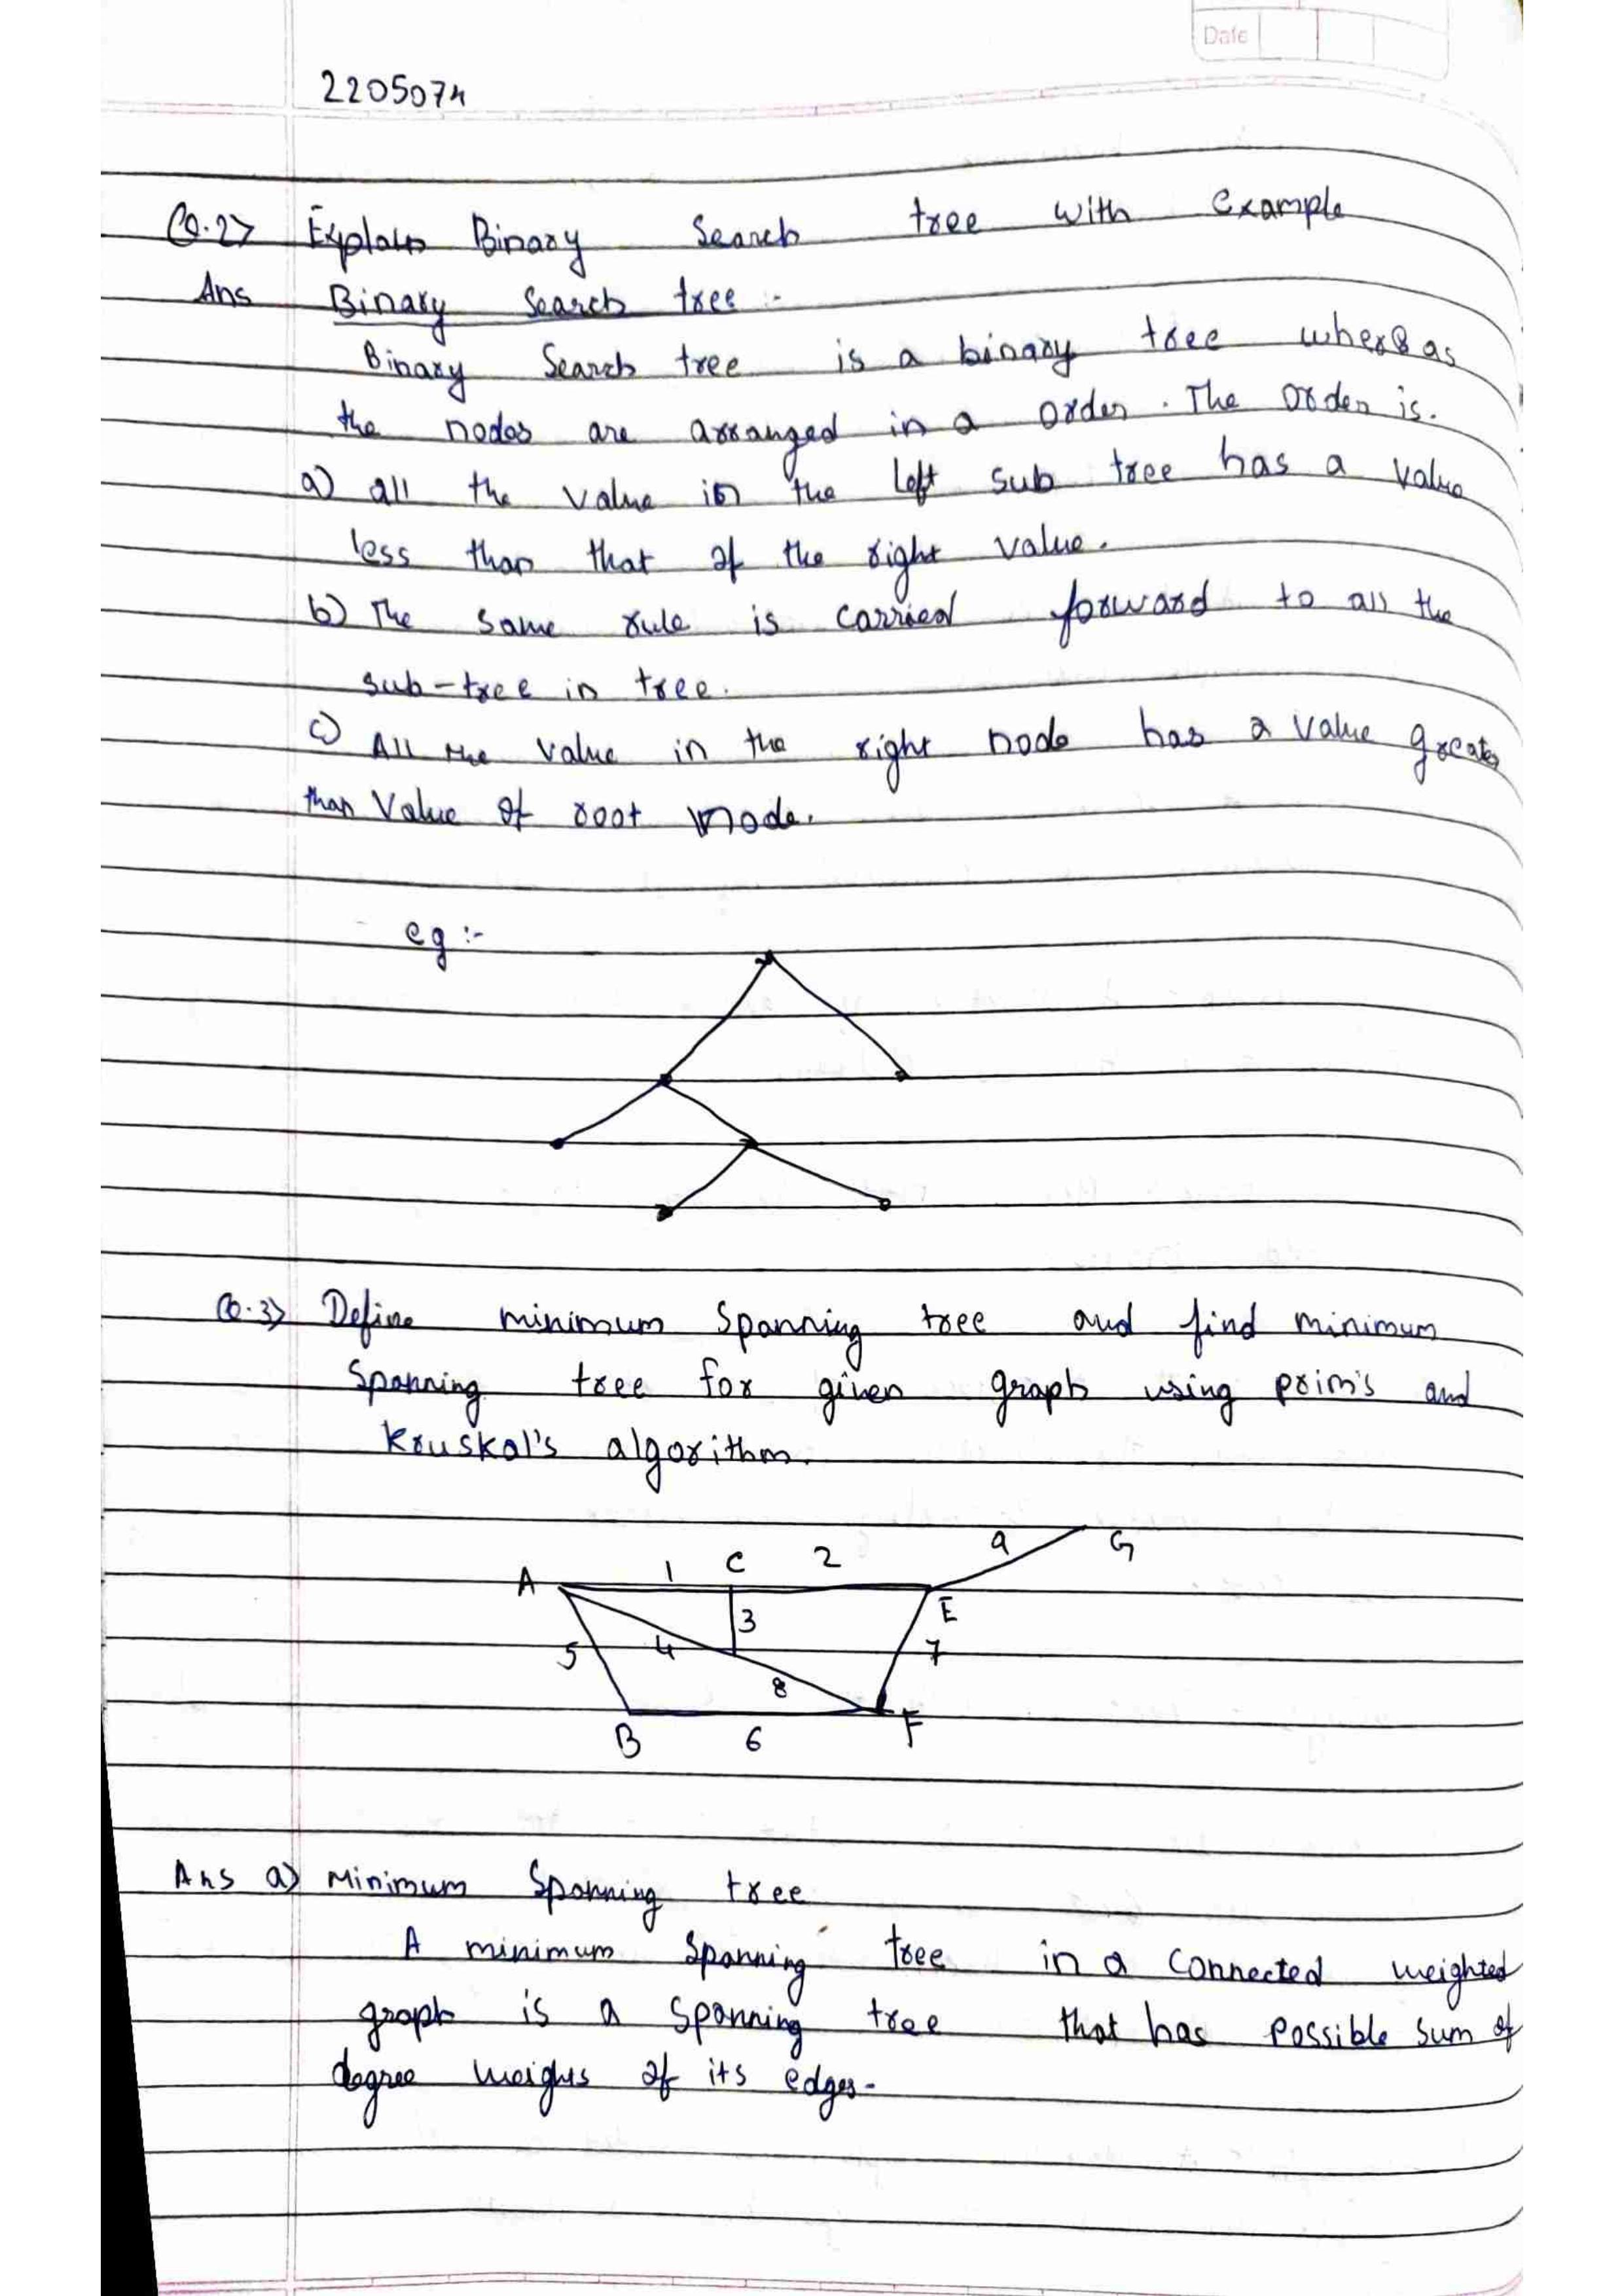 Date
2205074
Q.2> Explain Binary Search tree with example
Ans Binary Search tree :-
Binary Search tree is a binary tree where as
the nodes are arranged in a order. The order is.
a) all the value in the left sub tree has a value
less than that of the right value.
b) The same rule is carried forward to all the
sub-tree in tree.
c) All the value in the right node has a value greater
than value of root node.
eg :-
Q.3> Define minimum spanning tree and find minimum
Spanning tree for given graph using prim's and
Kruskal's algorithm.
9 G
A 1 C 2
3 E
5 4 7
8
B 6 F
Ans a) Minimum Spanning tree
A minimum spanning tree in a connected weighted
graph is a spanning tree that has possible sum of
degree weighs of its edges-